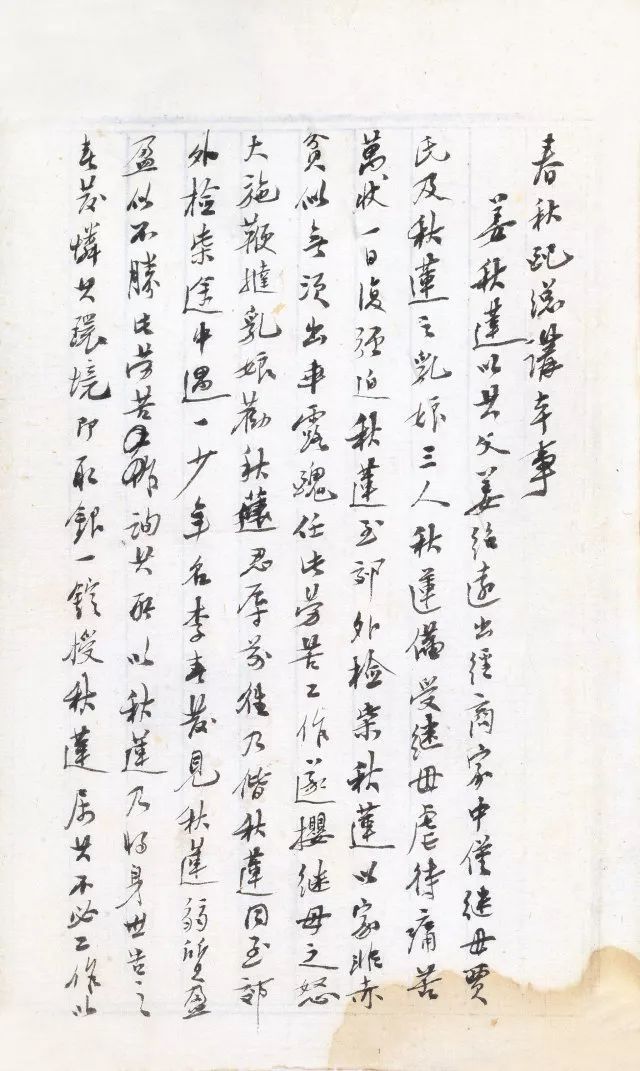 春秋配總講本事
姜秋蓮以其父姜紹遠出經商家中僅繼母賈
氏及秋蓮之乳娘三人秋蓮備受繼母虐待痛苦
萬狀一日復強迫秋蓮至郊外檢柴秋蓮以家非赤
貧似無須出乖露醜任此勞苦工作遂攖繼母之怒
大施鞭撻乳娘勸秋蓮忍辱前往乃偕秋蓮同至郊
外檢柴途中遇一少年名李春發見秋蓮弱質盈
盈似不勝此勞苦詢其所以秋蓮乃將身世告之
春發憐其環境即取銀一錠授秋蓮屬其不必工作以